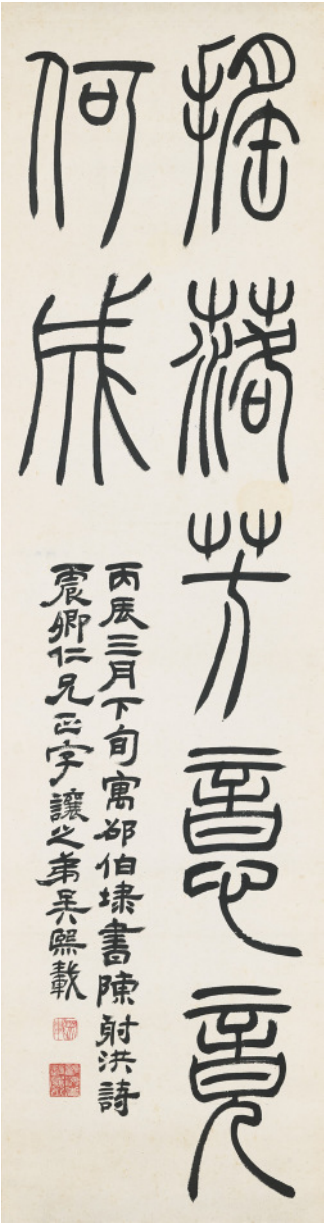 搖落芳意竟
何成
丙辰三月下旬寓邵伯埭書陳射洪詩
震卿仁兄正字讓之弟吳熙載